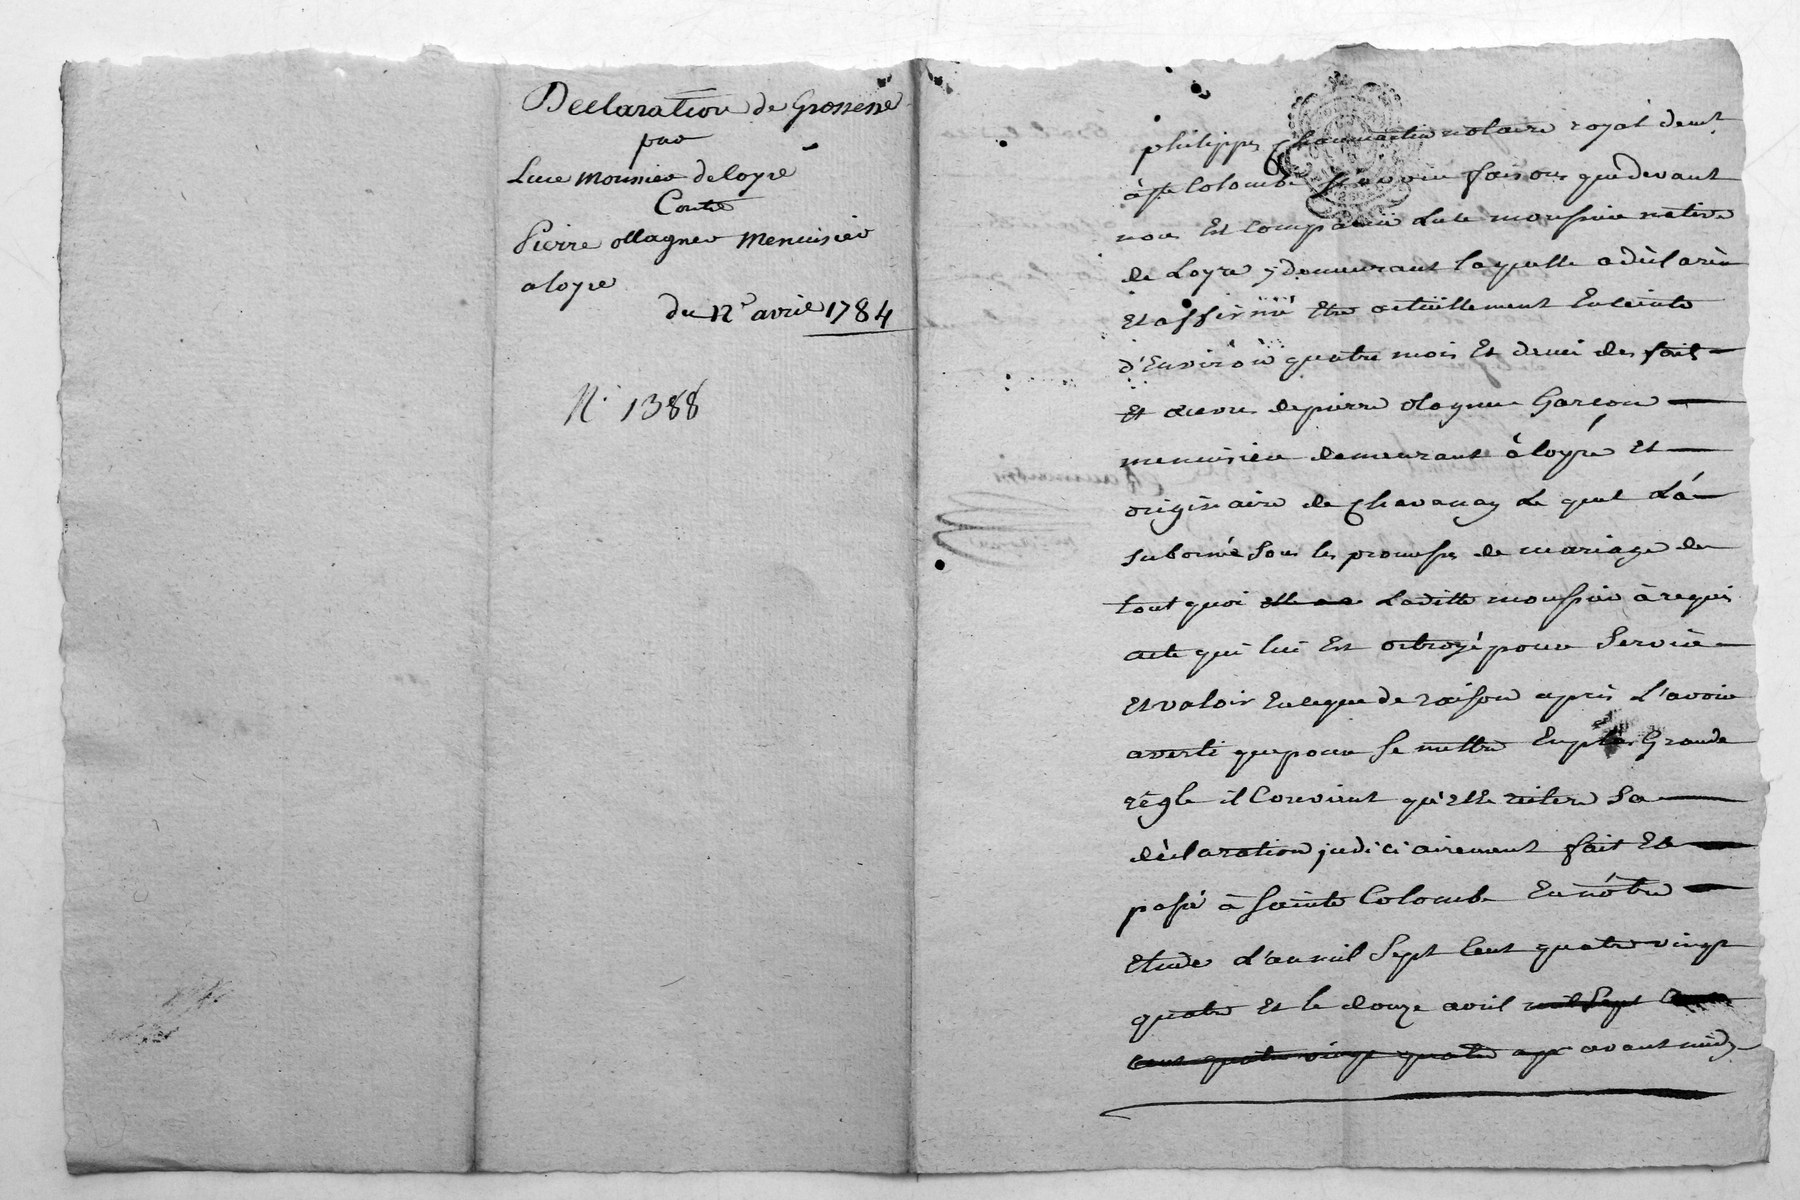 Declaration de Grossesse
par
Luce Mousnier de loyre
Contre
Pierre ollagner Menuisier
a loyre
du 12e avril 1784
N. 1388
philippe Chaumartin notaire royal demt
à ste Colombe sçavoir faisons que devant
nous Est comparüe Luce moussier native
de Loyre y demeurant laquelle a dèclarée
Et affirmé Etre actuellement Enceinte
d'Environ quatre mois Et demi des fait
Et œuvres de pierre olagner Garcon
menuisier demeurant à loyre Et
originaire de Chavanay Le quel L'a
subornée sous les promesses de mariage de
tout quoi Laditte moussier à requis
acte qui lui Est octroyé pour Servir
Et valoir En ce que de raison après L'avoir
averti que pour se mettre En plus Grande
règle il Convient qu'elle reitere Sa
dèclaration judiciairement fait Et
passé à Sainte Colombe En nôtre
Etude L'an mil Sept Cent quatre vingt
quatre Et le douze avril mil Sept
Cent quatre vingt quatre apr avant midy